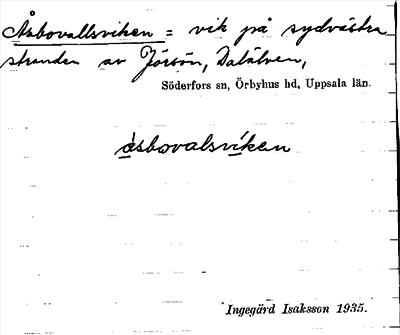 Åsbovallsviken = vik på sydvästra
stranden av Jörsön, Dalälven,
Söderfors sn, Örbyhus hd, Uppsala län.
åsbovalsviken
Ingegärd Isaksson 1935.